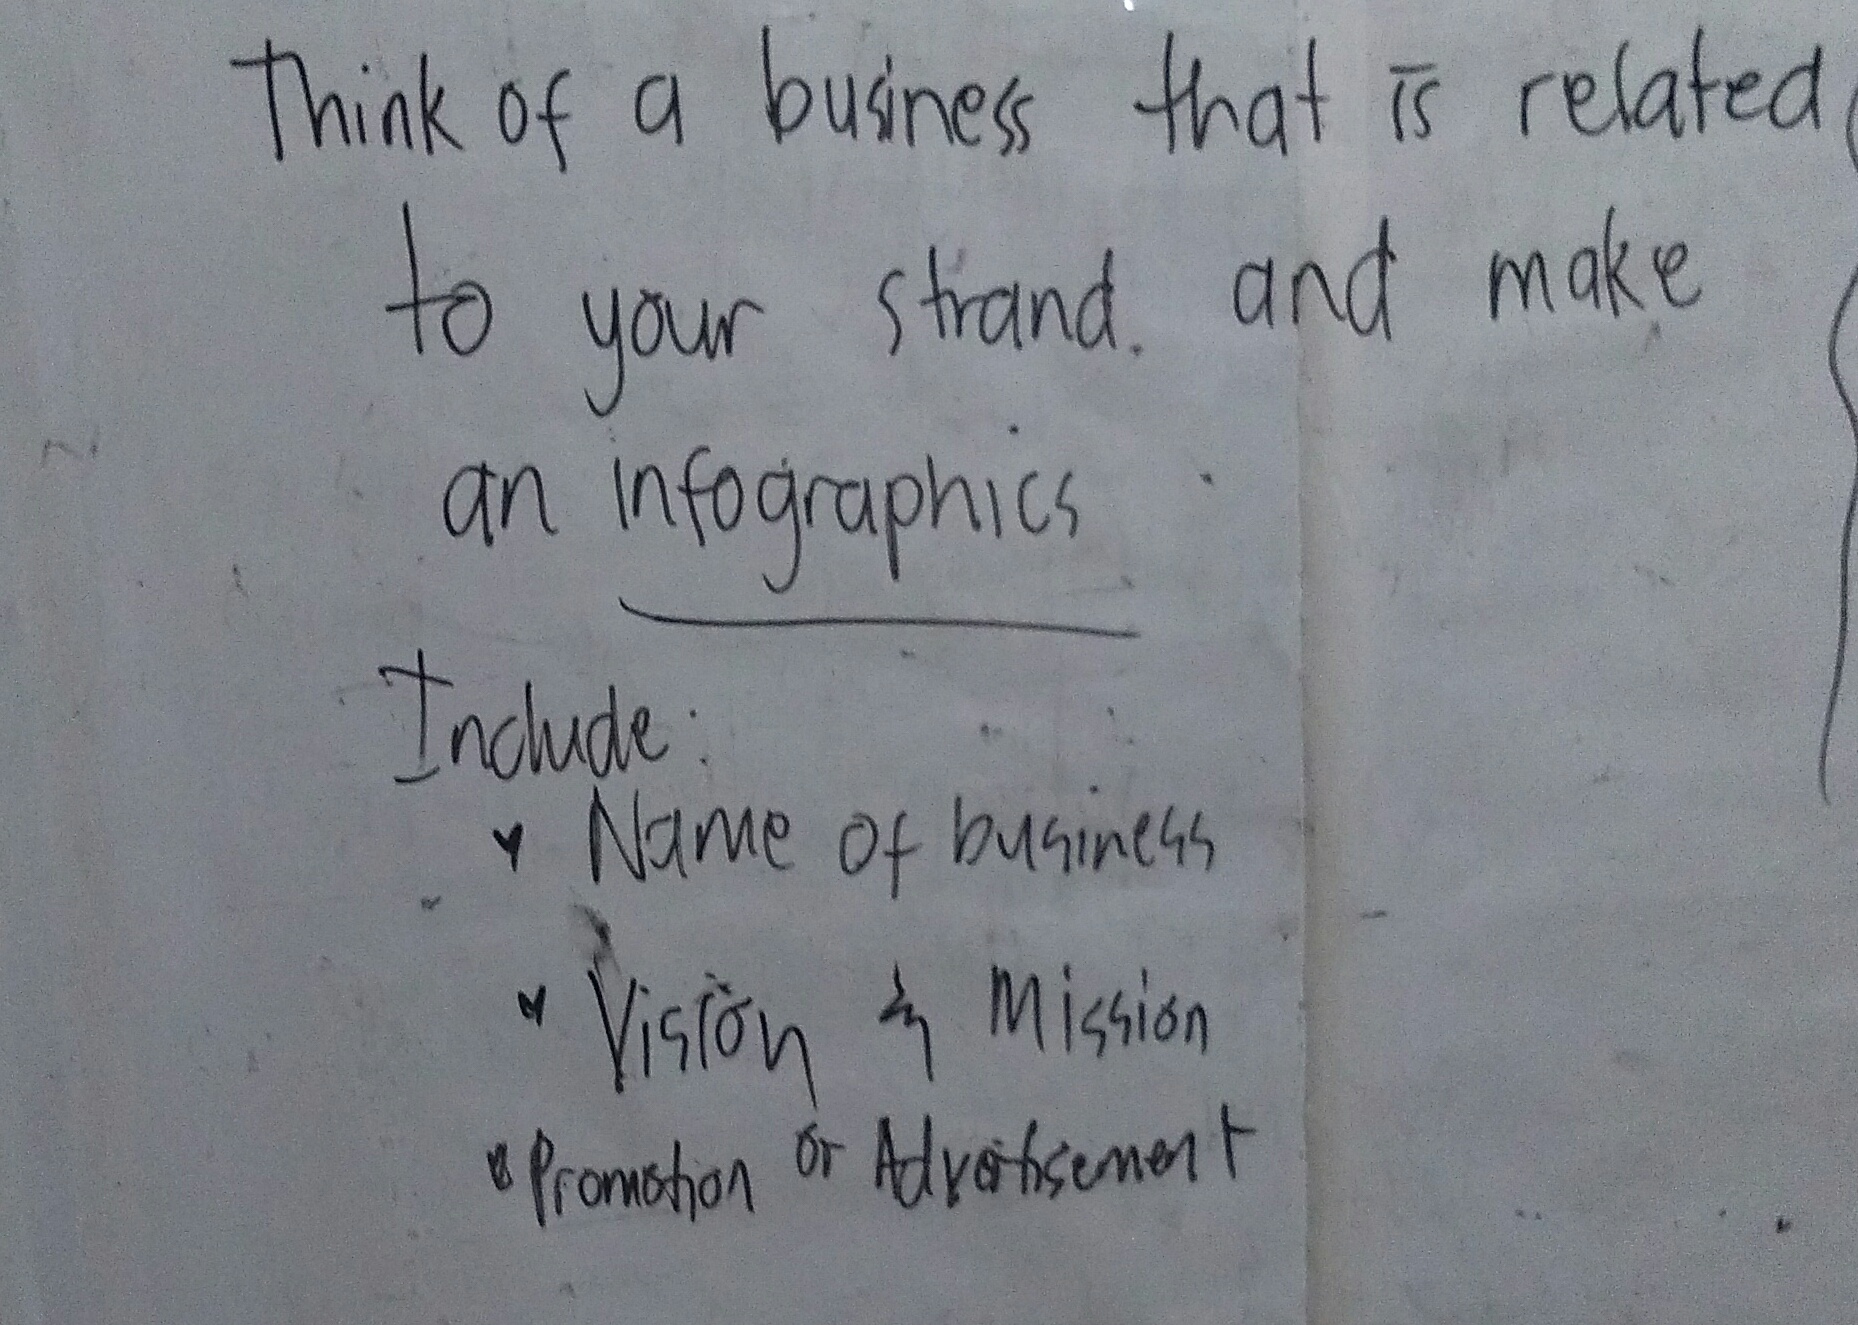 Think of a business that is related
to your strand. and make
an infographics
Include:
• Name of business
• Vision & Mission
• Promotion or Advertisement